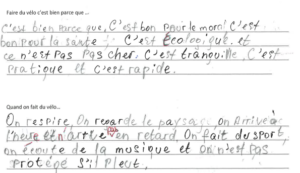 Faire du vélo c'est bien parce que ...
c'est bien parce que, C'est bon pour le moral C'est
bon pour la santé ; C'est écologique. et
ce n'est pas pas cher. C'est tranquille. C'est
pratique et c'est rapide.
Quand on fait du vélo...
On respire, On regarde le paysage, on arrive à
l'heure et n'arrive en retard, On fait du sport,
on écoute de la musique et On n'est pas
protégé s'il pleut.